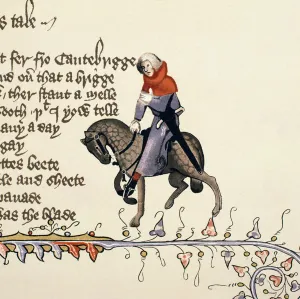 s tale
t fer fro Cantebrigge
nd on that a brigge
ther stant a melle
sooth þt I yow telle
any a day
gay
ttes beete
tle and sheete
panade
as the blade